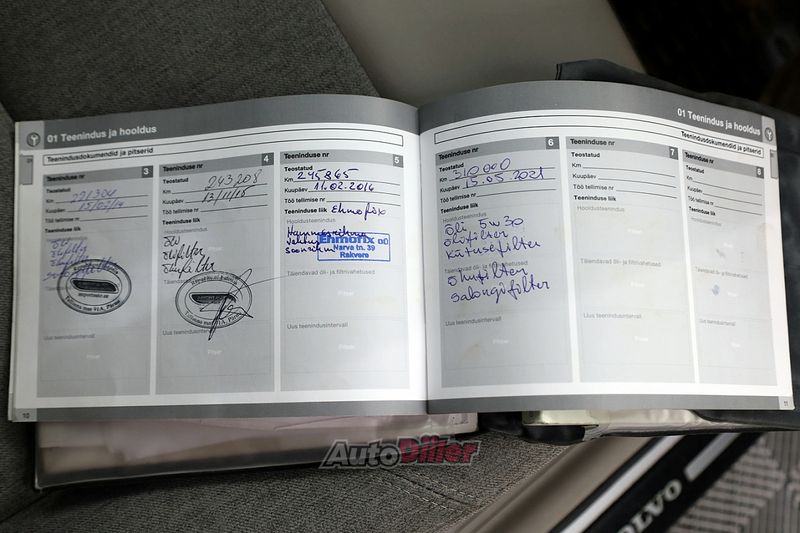 01 Teenindus ja hooldus
Teenindusdokumendid ja pitserid
Teeninduse nr 3
Teostatud
Km
Kuupäev 15/02/14
Töö tellimise nr
Teeninduse liik
Õli
Õlifilter
Uus teenindusintervall
Pitser
Teeninduse nr 4
Teostatud
Km 243208
Kuupäev 13/11/15
Töö tellimise nr
Teeninduse liik
Õli
Õlifilter
Õhufilter
Uus teenindusintervall
Pitser
Teeninduse nr 5
Teostatud
Km 245865
Kuupäev 11.02.2016
Töö tellimise nr
Teeninduse liik Ehmofix
Hammasrihma
Ehmofix OÜ
Narva tn. 39
Rakvere
Täiendavad õli- ja filtrivahetused
Uus teenindusintervall
Pitser
10
01 Teenindus ja hooldus
Teenindusdokumendid ja pitserid
Teeninduse nr 6
Teostatud
Km 310000
Kuupäev 15.05.2021
Töö tellimise nr
Teeninduse liik
Hooldusteenindus
Õli 5w30
Õlifilter
Kütusefilter
Täiendavad õli- ja filtrivahetused
Õhufilter
Salongifilter
Uus teenindusintervall
Pitser
Teeninduse nr 7
Teostatud
Km
Kuupäev
Töö tellimise nr
Teeninduse liik
Hooldusteenindus
Täiendavad õli- ja filtrivahetused
Uus teenindusintervall
Pitser
Teeninduse nr 8
Teostatud
Km
Kuupäev
Töö tellimise nr
Teeninduse liik
Hooldusteenindus
Täiendavad õli- ja filtrivahetused
Uus teenindusintervall
Pitser
11
AutoDiiler
VOLVO